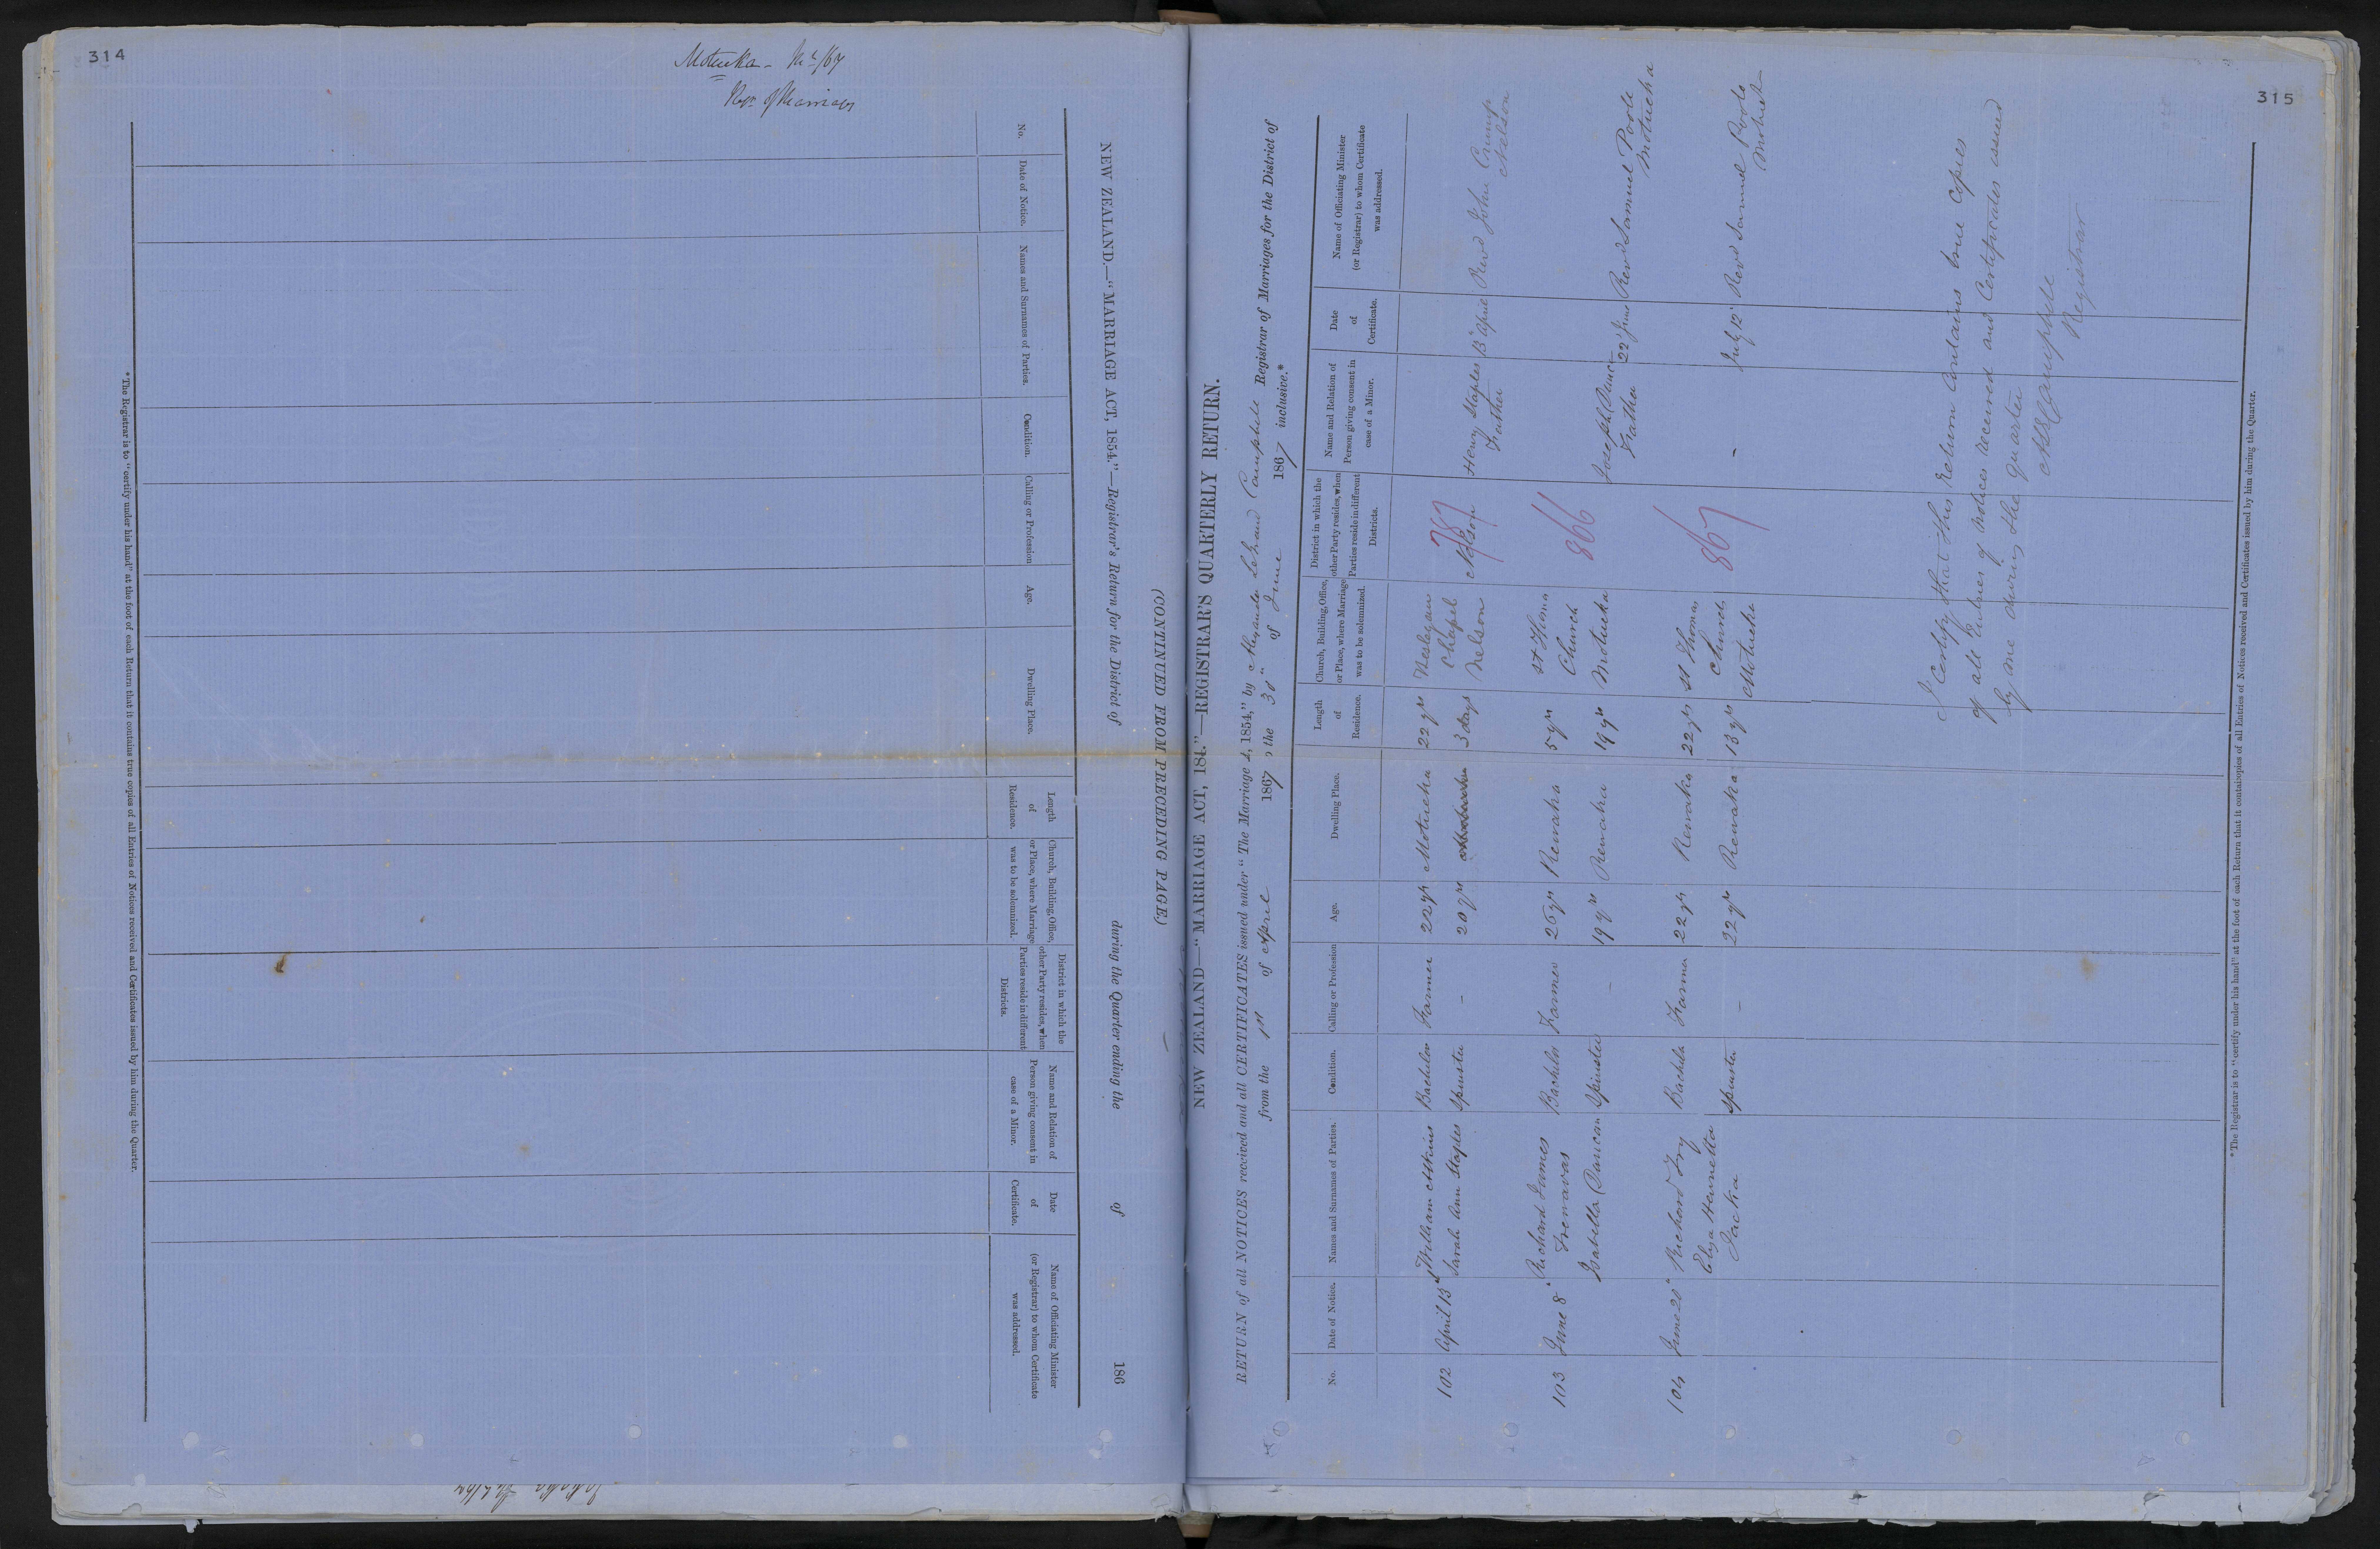 314
Motueka - 
Retn of Marriages
(CONTINUED FROM PRECEDING PAGE.)
NEW ZEALAND.—"MARRIAGE ACT, 1854."—Registrar's Return for the District of during the Quarter ending the of 186
No.
Date of Notice.
Names and Surnames of Parties.
Condition.
Calling or Profession
Age.
Dwelling Place.
Length
of
Residence.
Church, Building, Office,
or Place, where Marriage
was to be solemnized.
District in which the
other Party resides, when
Parties reside in different
Districts.
Name and Relation of
Person giving consent in
case of a Minor.
Date
of
Certificate.
Name of Officiating Minister
(or Registrar) to whom Certificate
was addressed.
*The Registrar is to "certify under his hand" at the foot of each Return that it contains true copies of all Entries of Notices received and Certificates issued by him during the Quarter.
315
NEW ZEALAND—"MARRIAGE ACT, 184."—REGISTRAR'S QUARTERLY RETURN.
RETURN of all NOTICES received and all CERTIFICATES issued under "The Marriage A, 1854," by Alexander LeGrand Campbell Registrar of Marriages for the District of
from the 1st of April 1867, the 30th of June 1867 inclusive.*
No.
Date of Notice.
Names and Surnames of Parties.
Condition.
Calling or Profession
Age.
Dwelling Place.
Length
of
Residence.
Church, Building, Office,
or Place, where Marriage
was to be solemnized.
District in which the
other Party resides, when
Parties reside in different
Districts.
Name and Relation of
Person giving consent in
case of a Minor.
Date
of
Certificate.
Name of Officiating Minister
(or Registrar) to whom Certificate
was addressed.
102 April 13 William Askins Bachelor Farmer 22 yrs Motueka 22 yrs Wesleyan Chapel Nelson 787 Nelson Henry Staples Father 13" April Revd John Crump Nelson
Sarah Ann Staples Spinster - 20 yrs 3 days
103 June 8" Richard James Trenavas Bachelor Farmer 26 yrs Rewaka 5 yrs St Thomas Church Motueka 866 Joseph Duncan Father 22" June Revd Samuel Poole Motueka
Isabella Duncan Spinster - 19 yrs Rewaka 19 yrs
104 June 20" Richard Fry Bachelor Farmer 22 yrs Rewaka 22 yrs St Thomas Church Motueka 867 - July 12" Revd Samuel Poole
Eliza Hennetta Jacka Spinster - 22 yrs Rewaka 13 yrs
I Certify that this return Contains true Copies
of all Entries of Notices received and Certificates issued
by me during the Quarter
Campbell
Registrar
*The Registrar is to "certify under his hand" at the foot of each Return that it containopies of all Entries of Notices received and Certificates issued by him during the Quarter.